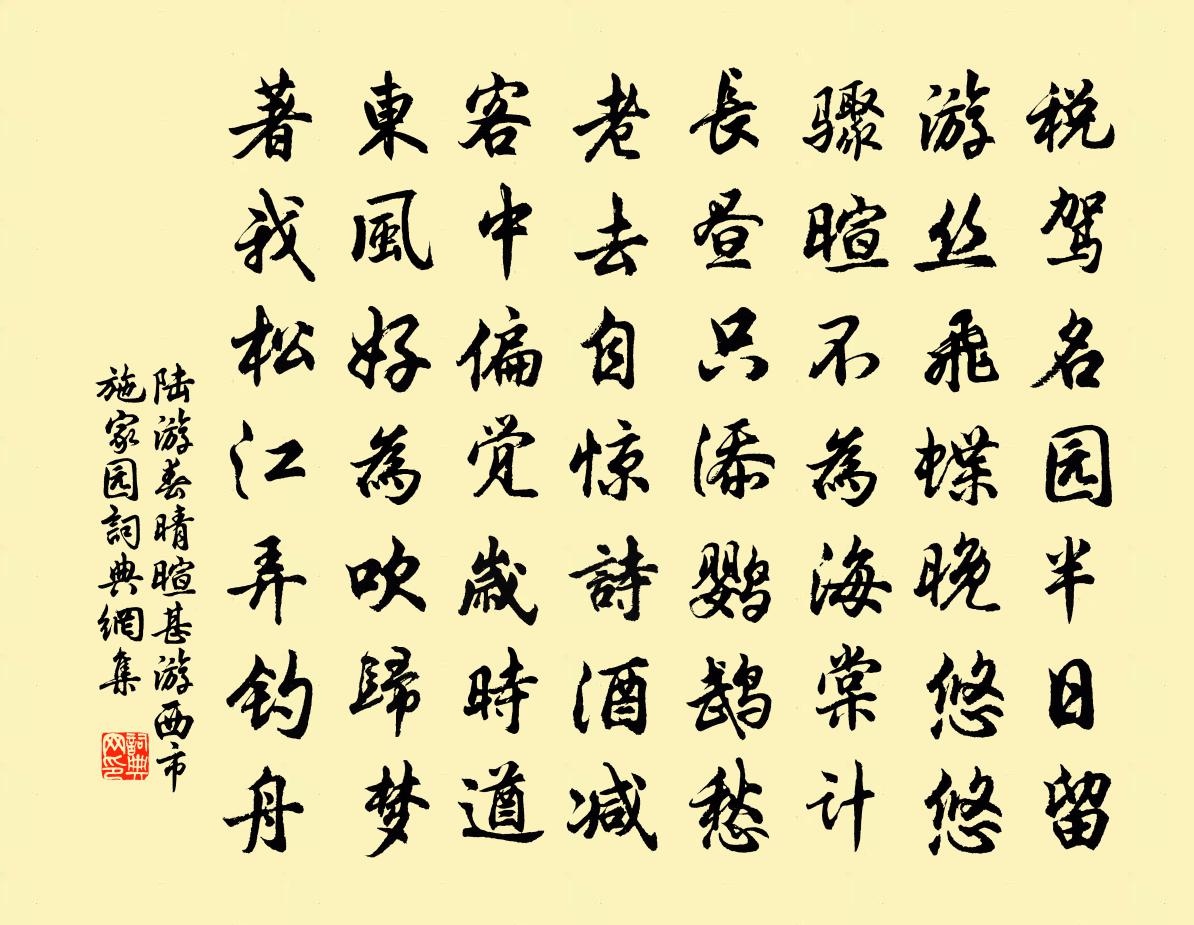 税驾名园半日留
游丝飛蝶晚悠悠
骤暄不為海棠计
長昼只添鹦鹉愁
老去自惊詩酒减
客中偏觉歳時遒
東風好為吹歸梦
著我松江弄钓舟
陆游春晴暄甚游西市
施家园詞典網集
詞典网印